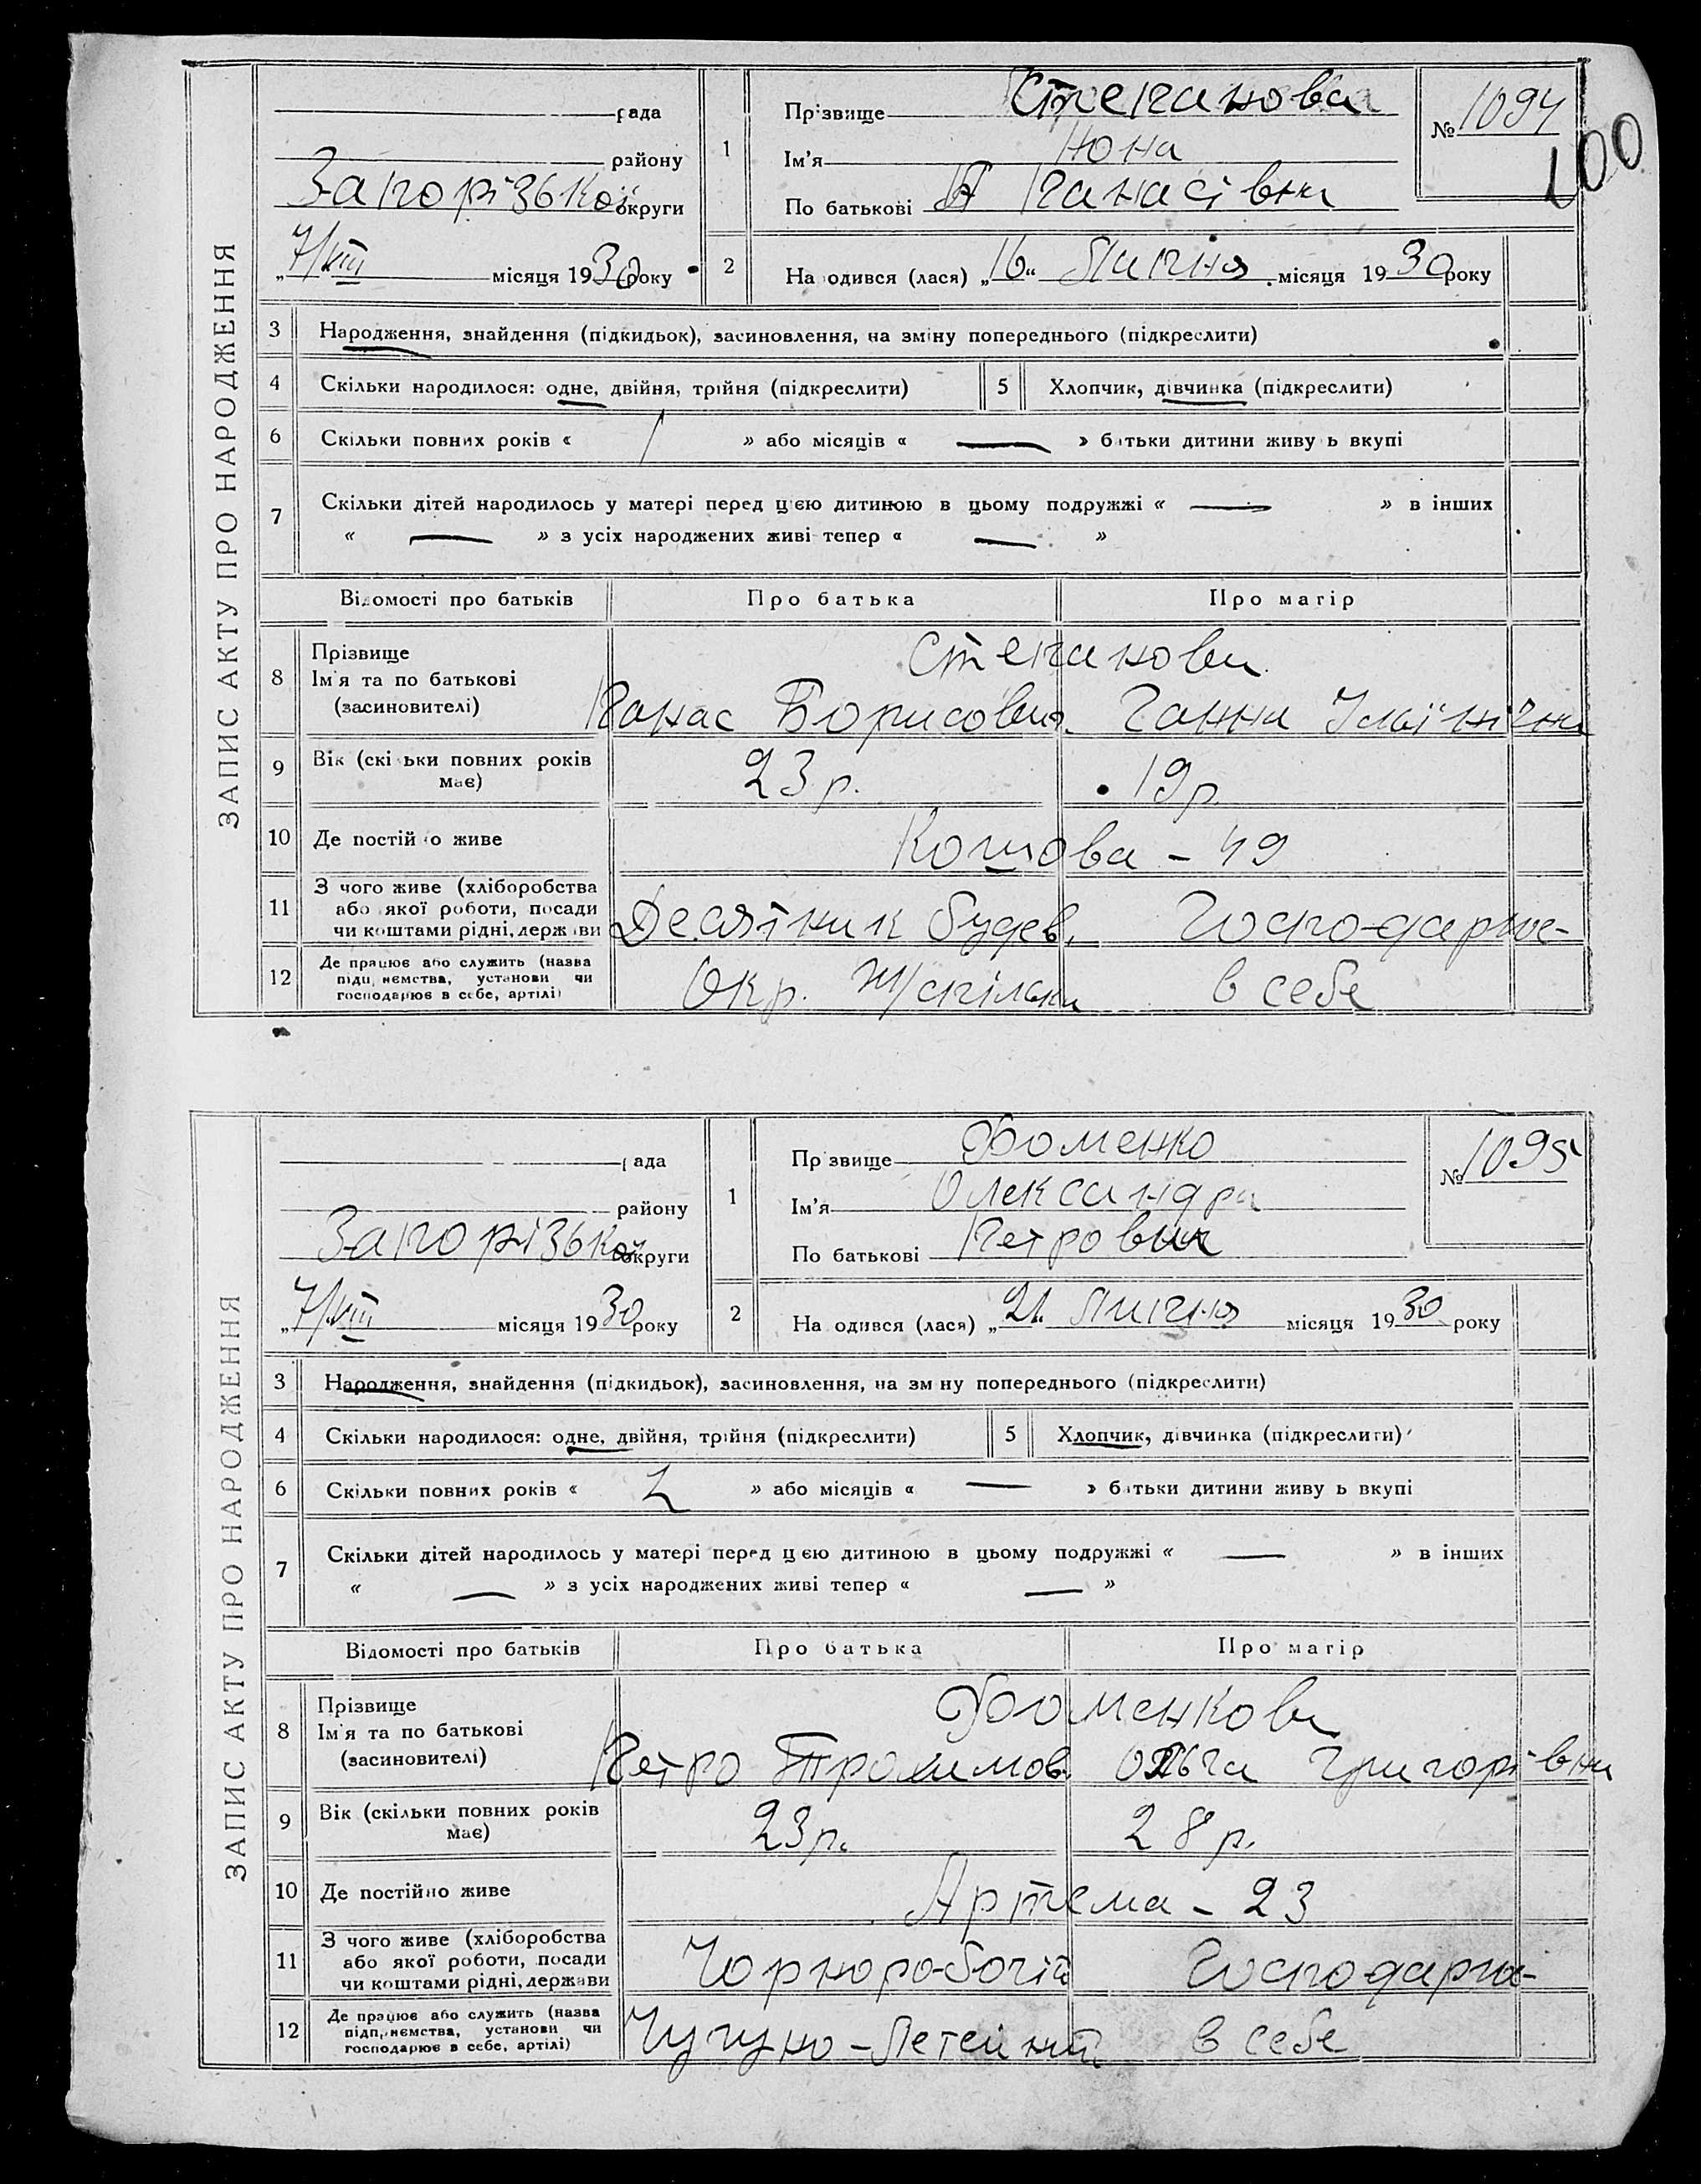 ЗАПИС АКТУ ПРО НАРОДЖЕННЯ
рада
району
Запорізької округи
„7/VIII місяця 1930 року
1
Прізвище Степанова
Ім'я Нона
По батькові Панасівна
№ 1094
100
2
На одився (лася) „16“ Липня місяця 1930 року
3 Народження, знайдення (підкидьок), засиновлення, на зміну попереднього (підкреслити)
4 Скільки народилося: одне, двійня, трійня (підкреслити) 5 Хлопчик, дівчинка (підкреслити)
6 Скільки повних років « 1 » або місяців « — » батьки дитини живу ь вкупі
7 Скільки дітей народилось у матері перед цією дитиною в цьому подружжі « — » в інших
« — » з усіх народжених живі тепер « — »
Відомості про батьків Про батька Про матір
8 Прізвище Ім'я та по батькові (засиновителі)
Степанови
Панас Борисович Ганна
9 Вік (скі ьки повних років має) 23 р. 19 р.
10 Де постій о живе Кошова - 49
11 З чого живе (хліборобства або якої роботи, посади чи коштами рідні, держави Десятник будев. Господарює-
12 Де працює або служить (назва підприємства, установи чи господарює в себе, артілі) Окр. Ж/спілки в себе
ЗАПИС АКТУ ПРО НАРОДЖЕННЯ
рада
району
Запорізької округи
„7/VIII місяця 1930 року
1
Пр звище Фоменко
Ім'я Олександра
По батькові Петрович
№ 1095
2
На одився (лася) „21“ Липня місяця 1930 року
3 Народження, знайдення (підкидьок), засиновлення, на зм ну попереднього (підкреслити)
4 Скільки народилося: одне, двійня, трійня (підкреслити) 5 Хлопчик, дівчинка (підкреслити)
6 Скільки повних років « 2 » або місяців « — » батьки дитини живу ь вкупі
7 Скільки дітей народилось у матері перед цією дитиною в цьому подружжі « — » в інших
« — » з усіх народжених живі тепер « — »
Відомості про батьків Про батька Про матір
8 Прізвище Ім'я та по батькові (засиновителі)
Фоменкови
Петро Трохимов. Ольга Григорівна
9 Вік (скільки повних років має) 23 р. 28 р.
10 Де постійно живе Артема - 23
11 З чого живе (хліборобства або якої роботи, посади чи коштами рідні, держави Чорноробочій Господарює-
12 Де працює або служить (назва підприємства, установи чи господарює в себе, артілі) Чугуно-Летейний в себе